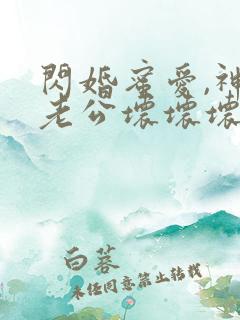 閃婚蜜愛,神
老公壞壞壞
白蓉
未經同意禁止轉載